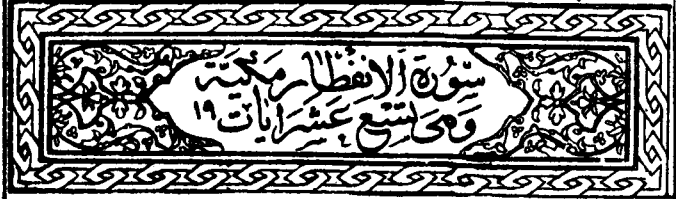 سُورَةُ الِانْفِطَارِ مَكِّيَّة
وَهِىَ تِسْعَ عَشَرَ ايَات ١٩